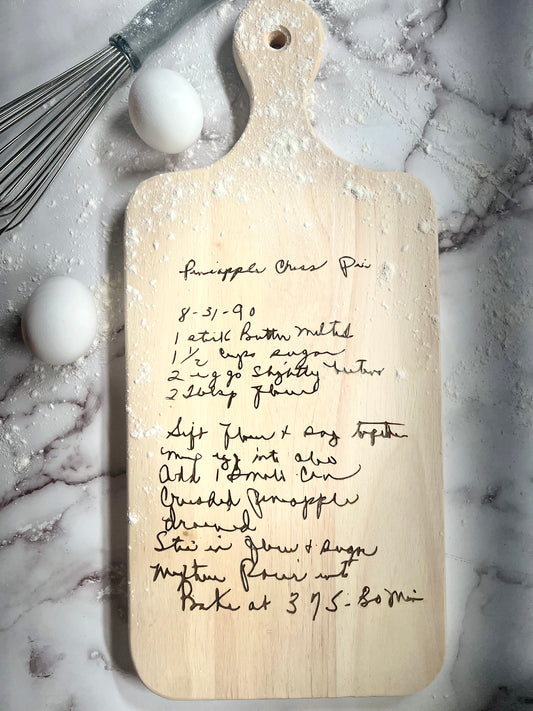 Pineapple Chess Pie
8-31-90
1 stick Butter Melted
1 1/2 cups sugar
2 eggs slightly beaten
2 Tblsp Flour
Sift Flour & Sug together
egg into also
Add 1 Small Can
Crushed Pineapple
drained
Stir in flour & sugar
Mixture Pour into
Bake at 375 - 30 Min